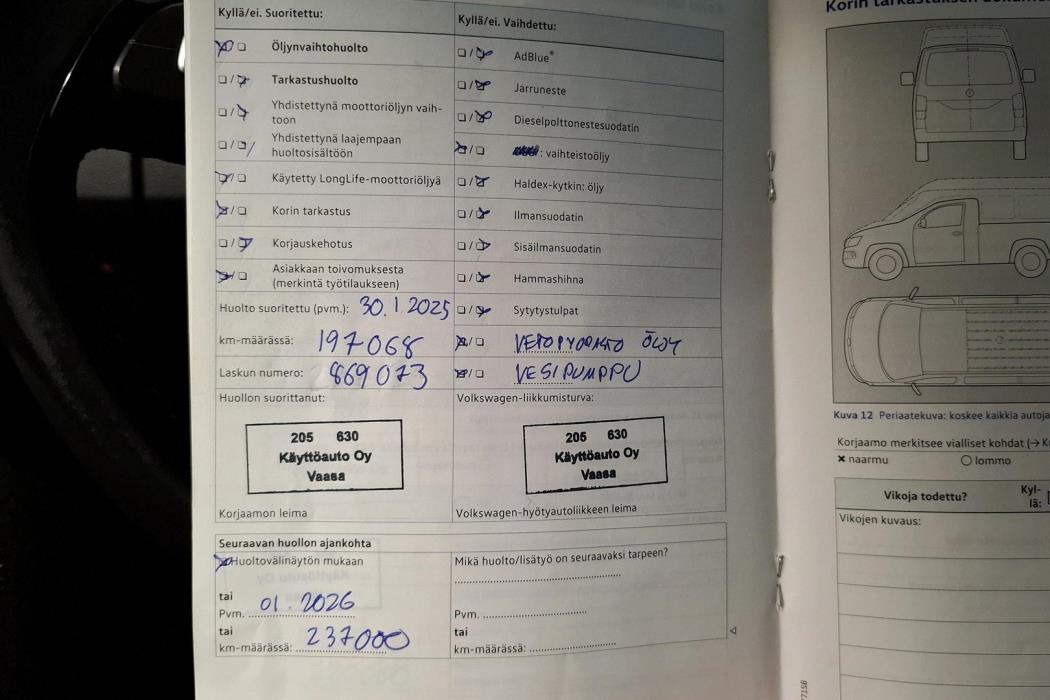 Kyllä/ei. Suoritettu:
Öljynvaihtohuolto
Tarkastushuolto
Yhdistettynä moottoriöljyn vaih-
toon
Yhdistettynä laajempaan
huoltosisältöön
Käytetty LongLife-moottoriöljyä
Korin tarkastus
Korjauskehotus
Asiakkaan toivomuksesta
(merkintä työtilaukseen)
Huolto suoritettu (pvm.): 30.1.2025
km-määrässä: 197068
Laskun numero: 869073
Huollon suorittanut:
205 630
Käyttöauto Oy
Vaasa
Korjaamon leima
Kyllä/ei. Vaihdettu:
AdBlue®
Jarruneste
Dieselpolttonestesuodatin
: vaihteistoöljy
Haldex-kytkin: öljy
Ilmansuodatin
Sisäilmansuodatin
Hammashihna
Sytytystulpat
VETOPYÖRÄSTÖ ÖLJY
VESIPUMPPU
Volkswagen-liikkumisturva:
205 630
Käyttöauto Oy
Vaasa
Volkswagen-hyötyautoliikkeen leima
Seuraavan huollon ajankohta
Huoltovälinäytön mukaan
tai
Pvm. 01.2026
tai
km-määrässä: 237000
Mikä huolto/lisätyö on seuraavaksi tarpeen?
Pvm.
tai
km-määrässä:
Korin tarkastuksen
Kuva 12 Periaatekuva: koskee kaikkia autoja
Korjaamo merkitsee vialliset kohdat (→
× naarmu
○ lommo
Vikoja todettu?
Kyl-
lä:
Vikojen kuvaus: